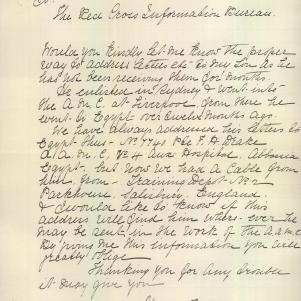 The Red Cross Information Bureau.
Would you kindly let me know the proper
way to address letters etc to my son as he
has not been receiving them for months.
He enlisted in Sydney & went into
the A.M.C. at Liverpool, from there he
went to Egypt over twelve months ago.
We have always addressed his letters to
Egypt thus - No Pte F. A. Blake
A.A.M.C, No 4 Aux Hospital, Abbassia
Egypt - but now we had a Cable from
him from - Training Depot No 2
Parkhouse, Salisbury England
& would like to know if this
address will find him where-ever he
may be sent in the work of the A.A.M.C
By giving me this Information you will
greatly oblige
Thanking you for any trouble
it may give you